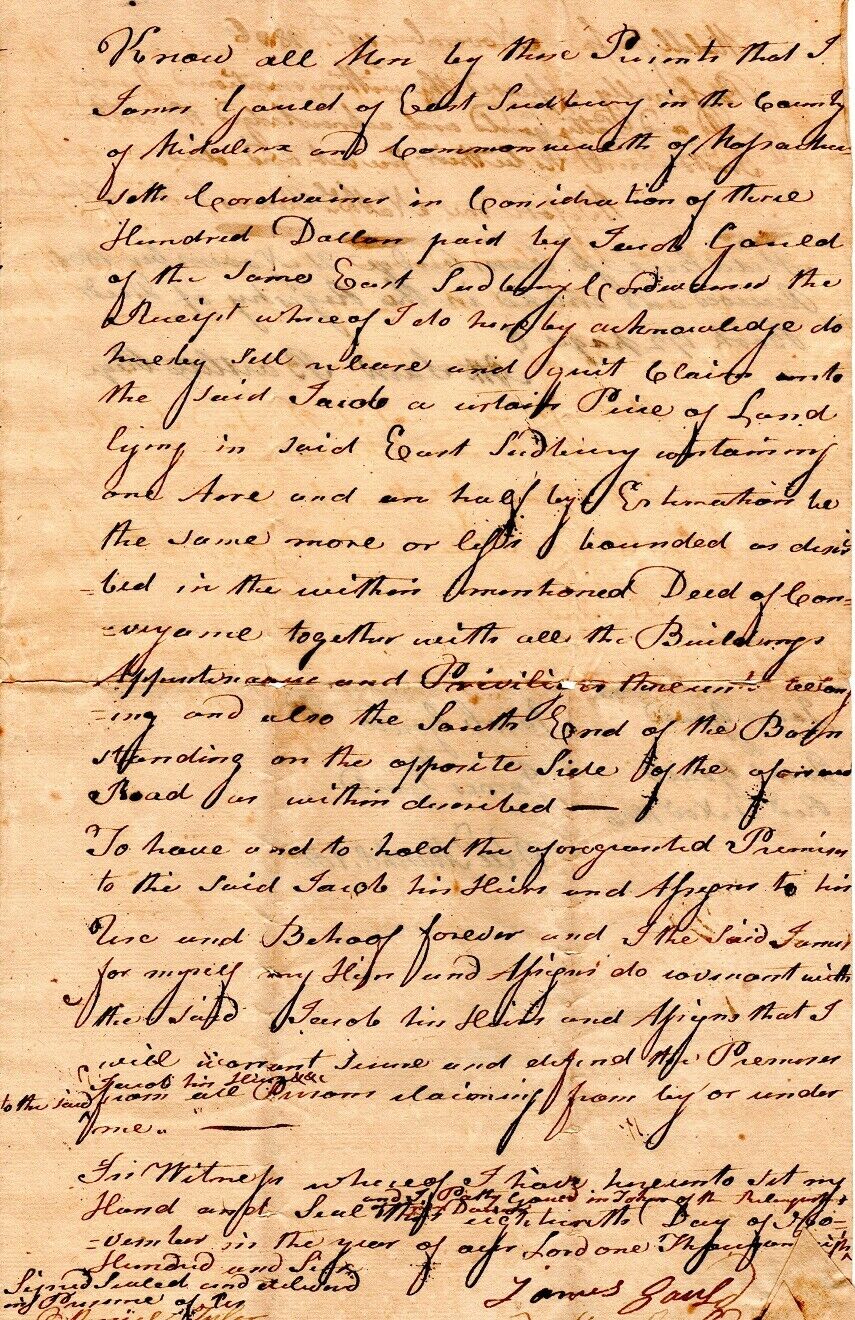 Know all Men by these Presents that I
James Gauld of East Sudbury in the County
of Middlesex and Commonwealth of Massachu-
-setts Cordwainer in Consideration of three
Hundred Dollars paid by Jacob Gauld
of the same East Sudbury Cordwainer the
Receipt whereof I do hereby acknowledge do
hereby sell release and quit Claim unto
the said Jacob a certain Piece of Land
lying in said East Sudbury containing
one Acre and an half by Estimation be
the same more or less bounded as descri
=bed in the within mentioned Deed of Con=
=veyance together with all the Buildings
Appurtenances and Privileges thereunto belong
=ing and also the South End of the Barn
standing on the opposite Side of the aforesaid
Road as within described —
To have and to hold the aforegranted Premises
to the said Jacob his Heirs and Assigns to his
Use and Behoof forever and I the said James
for myself my Heirs and Assigns do covenant with
the said Jacob his Heirs and Assigns that I
will warrant secure and defend the Premises
to the said Jacob his Heirs &c
from all Persons claiming from by or under
me. —
In Witness whereof I have hereunto set my
and I Patty Gauld in Token of the Relinquish
Hand and Seal this eighteenth Day of No-
=vember in the year of our Lord one Thousand eight
Hundred and Six
Signed Sealed and delivered
in Presence of us
James Gauld